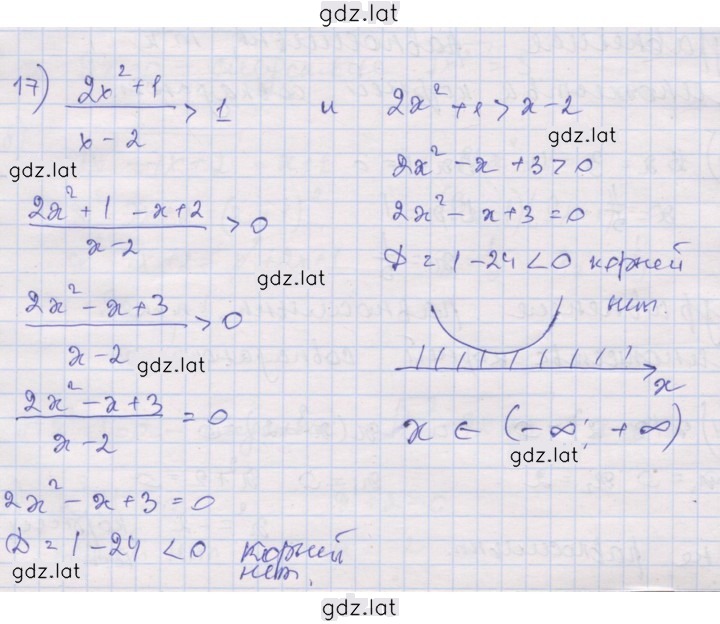 gdz.lat
17) (2x² + 1)/(x - 2) > 1 и 2x² + 1 > x - 2
gdz.lat
gdz.lat
2x² - x + 3 > 0
(2x² + 1 - x + 2)/(x - 2) > 0
2x² - x + 3 = 0
gdz.lat
D = 1 - 24 < 0 корней
нет.
(2x² - x + 3)/(x - 2) > 0
gdz.lat
x
(2x² - x + 3)/(x - 2) = 0
x ∈ (-∞; +∞)
gdz.lat
2x² - x + 3 = 0
D = 1 - 24 < 0 корней
нет.
gdz.lat
gdz.lat